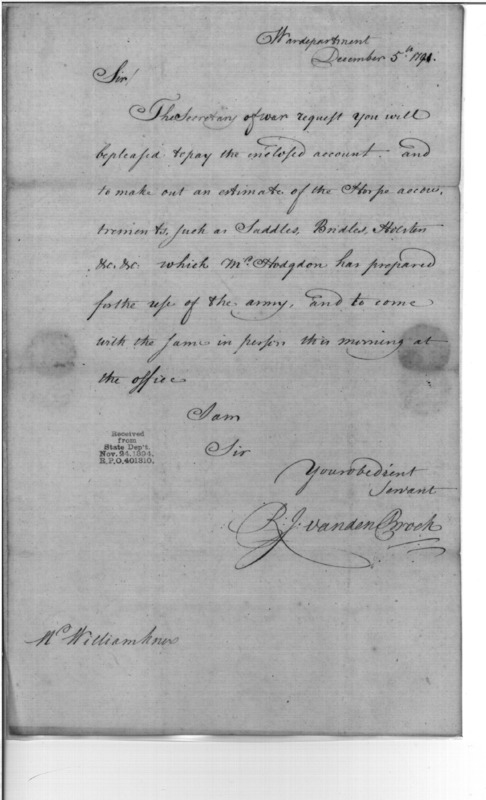 Wardepartment
December 5th 1791.
Sir!
The Secretary of war request you will
be pleased to pay the enclosed account. and
to make out an estimate of the Horse accou,
trements, such as Saddles, Bridles, Holster
&c. &c. which Mr. Hodgdon has prepared
for the use of the army, and to come
with the same in person this morning at
the office
I am
Sir
Your obedient
Servant
R. J. vanden Broek
Received
from
State Dep't.
Nov. 24, 1894.
R.P.O. 401310.
Mr William Knox